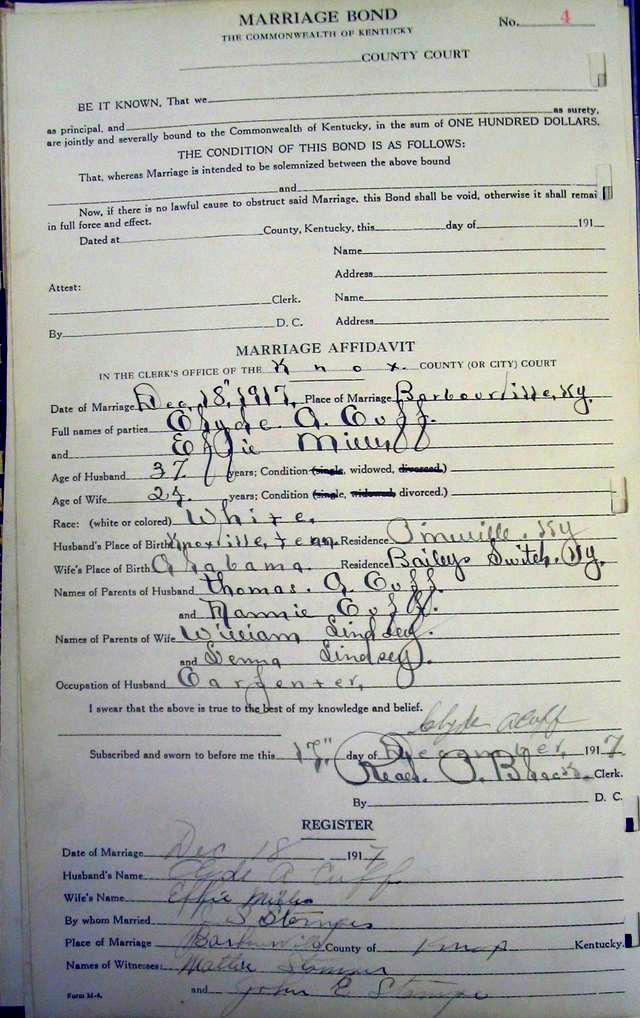 MARRIAGE BOND
No. 4
THE COMMONWEALTH OF KENTUCKY
COUNTY COURT
BE IT KNOWN, That we
as principal, and as surety,
are jointly and severally bound to the Commonwealth of Kentucky, in the sum of ONE HUNDRED DOLLARS.
THE CONDITION OF THIS BOND IS AS FOLLOWS:
That, whereas Marriage is intended to be solemnized between the above bound
and
Now, if there is no lawful cause to obstruct said Marriage, this Bond shall be void, otherwise it shall remai
in full force and effect.
Dated at County, Kentucky, this day of 191
Name
Address
Attest:
Clerk. Name
By D. C. Address
MARRIAGE AFFIDAVIT
IN THE CLERK'S OFFICE OF THE Knox. COUNTY (OR CITY) COURT
Date of Marriage Dec, 18, 1917, Place of Marriage Barbourville, Ky.
Full names of parties Clyde A. Cuff.
and Effie
Age of Husband 37 years; Condition (single, widowed, divorced.)
Age of Wife years; Condition (single, widowed, divorced.)
Race: (white or colored) White.
Husband's Place of Birth Knoxville, Tenn. Residence Pineville. Ky
Wife's Place of Birth Alabama. Residence Baileys Switch. Ky.
Names of Parents of Husband Thomas. A Cuff.
and Mannie Cuff.
Names of Parents of Wife William Lindsey.
and Lindsey.
Occupation of Husband Carpenter,
I swear that the above is true to the best of my knowledge and belief.
Clyde Acuff
Subscribed and sworn to before me this 17" day of December, 1917
Read. P. Black Clerk.
By D. C.
REGISTER
Date of Marriage Dec 18 1917
Husband's Name Clyde A Cuff
Wife's Name Effie
By whom Married
Place of Marriage County of Knox Kentucky.
Names of Witnesses: Mattie
and John E
Form M-4.